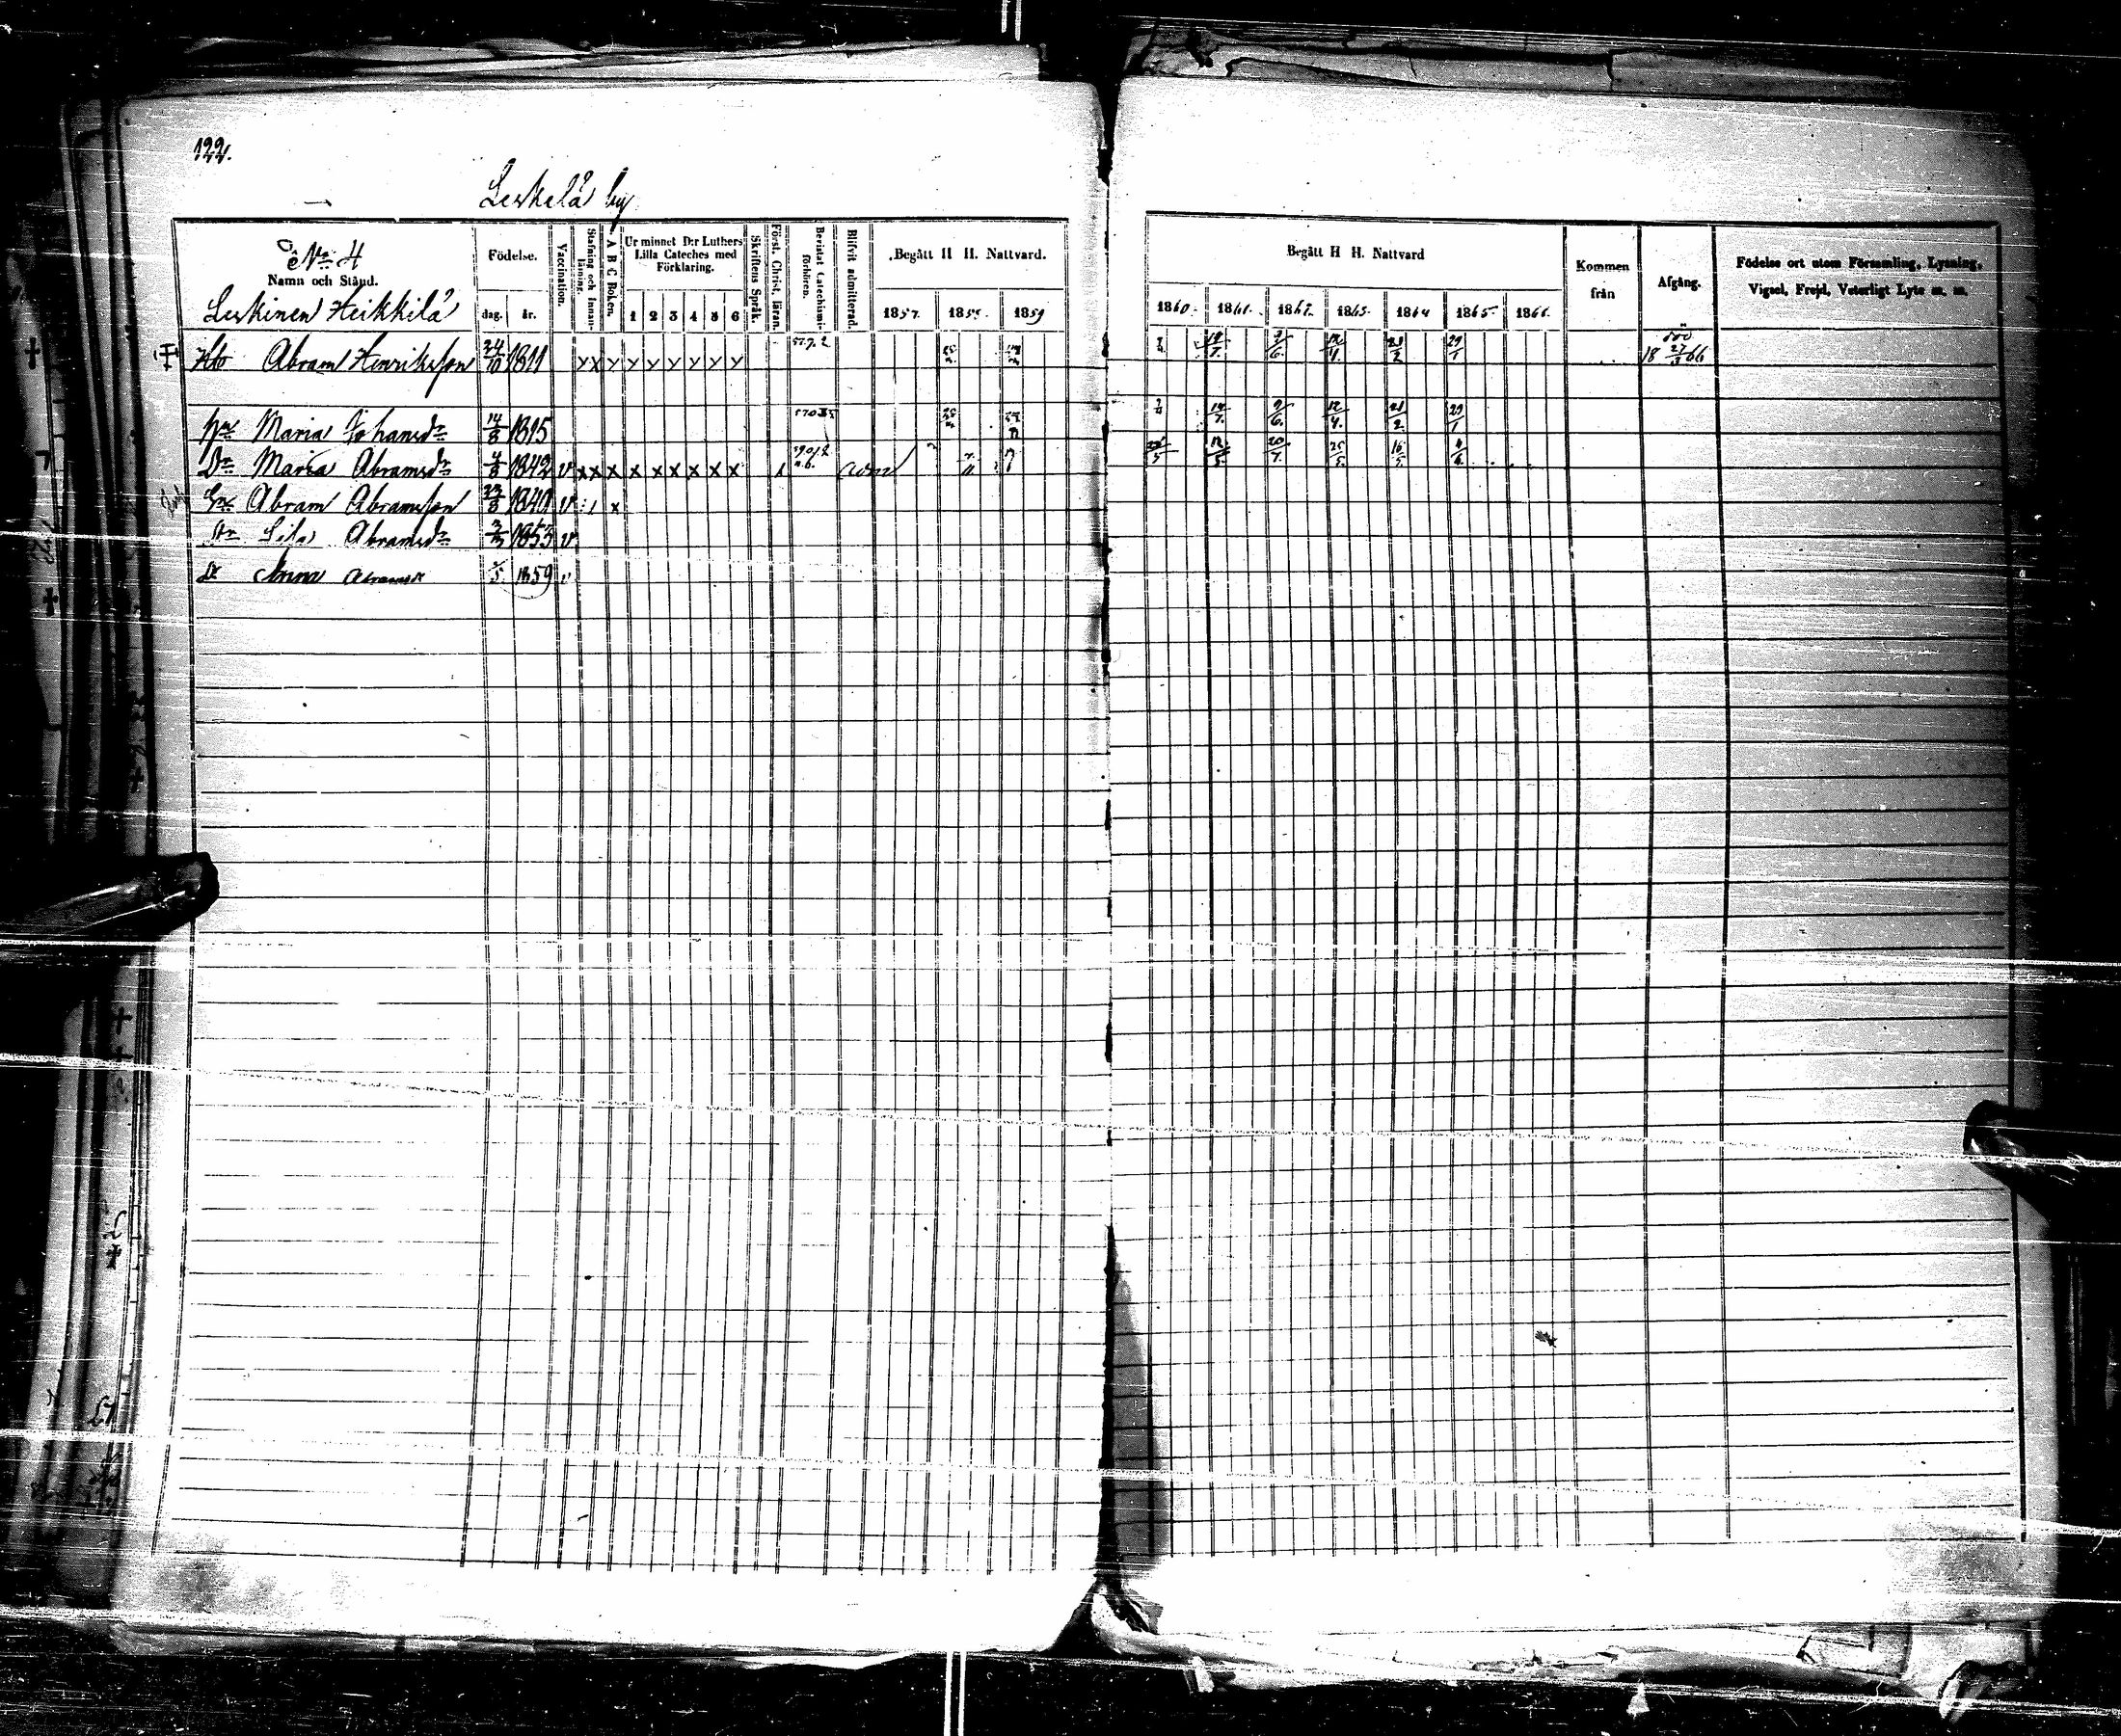 122.
Leskelä by
No 4
Namn och Stånd.
Leskinen Heikkilä
Födelse.
dag. år.
Vaccination.
Stafning och Innanläsning.
A B C Boken.
Ur minnet D:r Luthers Lilla Cateches med Förklaring.
1 2 3 4 5 6
Skriftens Språk.
Först. Christ. läran.
Bevistat Catechismi-förhören.
Blifvit admitterad.
Begått H H. Nattvard.
1857. 1858. 1859
Abram Henriksson 24/10 1811 x x x x x x x x x
Maria Johansdr 14/8 1815
Dr Maria Abramsdr 4/8 1842 v x x x x x x x x x
Sn Abram Abramsson 23/8 1840 v
Dr Abramsdr 1853 v
Dr Anna Abramsdr 1859 v
Begått H H. Nattvard
1860. 1861. 1862. 1863. 1864 1865. 1866.
Kommen från
Afgång.
Födelse ort utom Församling, Lysning, Vigsel, Frejd, Veterligt Lyte m. m.
12/7. 9/6. 12/4. 21/2 29/1 18 27/3 66
12/7. 9/6. 12/4. 21/2. 29/1
12/5. 20/7. 25/5. 16/5.